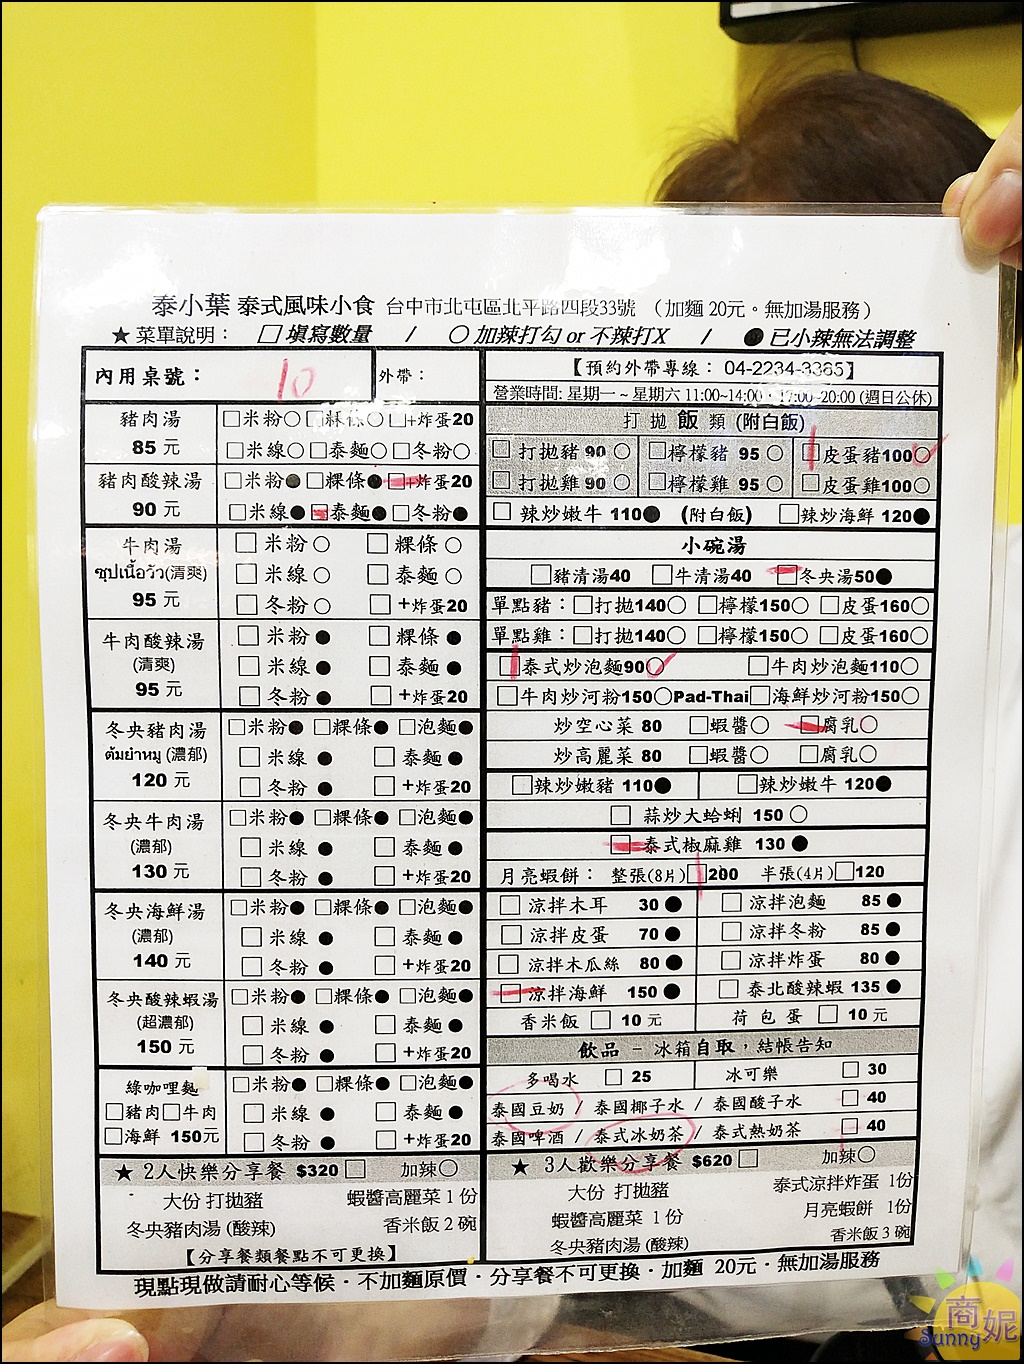 泰小葉 泰式風味小食 台中市北屯區北平路四段33號 （加麵 20元。無加湯服務）
★菜單說明： □ 填寫數量 / ○ 加辣打勾 or 不辣打X / ● 已小辣無法調整
內用桌號： 10 外帶：
豬肉湯 85 元
□米粉○ □粿條○ □+炸蛋20
□米線○ □泰麵○ □冬粉○
豬肉酸辣湯 90 元
□米粉● □粿條● □+炸蛋20
□米線● □泰麵● □冬粉●
牛肉湯
ซุปเนื้อวัว(清爽)
95 元
□ 米粉○ □ 粿條○
□ 米線○ □ 泰麵○
□ 冬粉○ □ +炸蛋20
牛肉酸辣湯
(清爽)
95 元
□ 米粉● □ 粿條●
□ 米線● □ 泰麵●
□ 冬粉● □ +炸蛋20
冬央豬肉湯
ต้มยำหมู (濃郁)
120 元
□米粉● □粿條● □泡麵●
□ 米線● □ 泰麵●
□ 冬粉● □ +炸蛋20
冬央牛肉湯
(濃郁)
130 元
□米粉● □粿條● □泡麵●
□ 米線● □ 泰麵●
□ 冬粉● □ +炸蛋20
冬央海鮮湯
(濃郁)
140 元
□米粉● □粿條● □泡麵●
□ 米線● □ 泰麵●
□ 冬粉● □ +炸蛋20
冬央酸辣蝦湯
(超濃郁)
150 元
□米粉● □粿條● □泡麵●
□ 米線● □ 泰麵●
□ 冬粉● □ +炸蛋20
綠咖哩麵
□豬肉□牛肉
□海鮮 150元
□米粉● □粿條● □泡麵●
□ 米線● □ 泰麵●
□ 冬粉● □ +炸蛋20
★ 2人快樂分享餐 $320□ 加辣○
大份 打拋豬 蝦醬高麗菜 1 份
冬央豬肉湯 (酸辣) 香米飯 2 碗
【分享餐類餐點不可更換】
【預約外帶專線： 04-2234-3365】
營業時間: 星期一 ~ 星期六 11:00~14:00，17:00~20:00 (週日公休)
打 拋 飯 類 (附白飯)
□ 打拋豬 90 ○ □檸檬豬 95 ○ □皮蛋豬100○
□ 打拋雞 90 ○ □檸檬雞 95 ○ □皮蛋雞100○
□ 辣炒嫩牛 110● (附白飯) □辣炒海鮮 120●
小碗湯
□豬清湯40 □牛清湯40 □冬央湯50●
單點豬：□打拋140○ □檸檬150○ □皮蛋160○
單點雞：□打拋140○ □檸檬150○ □皮蛋160○
□泰式炒泡麵90○ □牛肉炒泡麵110○
□牛肉炒河粉150○Pad-Thai□海鮮炒河粉150○
炒空心菜 80 □蝦醬○ □腐乳○
炒高麗菜 80 □蝦醬○ □腐乳○
□辣炒嫩豬 110● □辣炒嫩牛 120●
□ 蒜炒大蛤蜊 150 ○
□ 泰式椒麻雞 130 ●
月亮蝦餅： 整張(8片)□200 半張(4片)□120
□ 涼拌木耳 30 ● □ 涼拌泡麵 85 ●
□ 涼拌皮蛋 70 ● □ 涼拌冬粉 85 ●
□ 涼拌木瓜絲 80 ● □ 涼拌炸蛋 80 ●
□ 涼拌海鮮 150 ● □ 泰北酸辣蝦 135 ●
香米飯 □ 10 元 荷包蛋 □ 10 元
飲品 － 冰箱自取，結帳告知
多喝水 □ 25 冰可樂 □ 30
泰國豆奶 / 泰國椰子水 / 泰國酸子水 □ 40
泰國啤酒 / 泰式冰奶茶 / 泰式熱奶茶 □ 40
★ 3人歡樂分享餐 $620□ 加辣○
大份 打拋豬 泰式涼拌炸蛋 1份
蝦醬高麗菜 1 份 月亮蝦餅 1份
冬央豬肉湯 (酸辣) 香米飯 3 碗
現點現做請耐心等候．不加麵原價．分享餐不可更換．加麵 20元．無加湯服務
商妮
Sunny